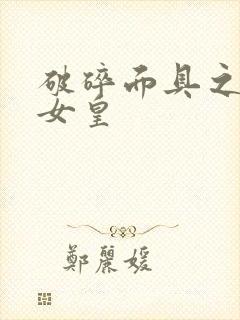 破碎而具之
女皇
鄭麗媛